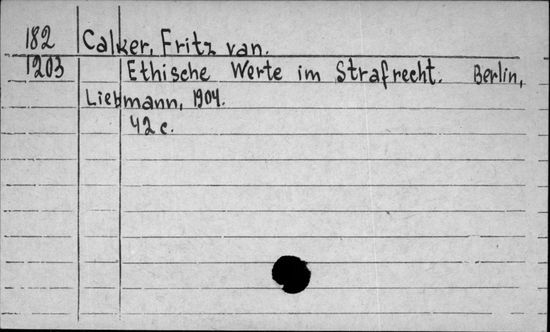 182 Calker, Fritz van.
1203 Ethische Werte im Strafrecht. Berlin,
Liebmann, 1904.
42 c.